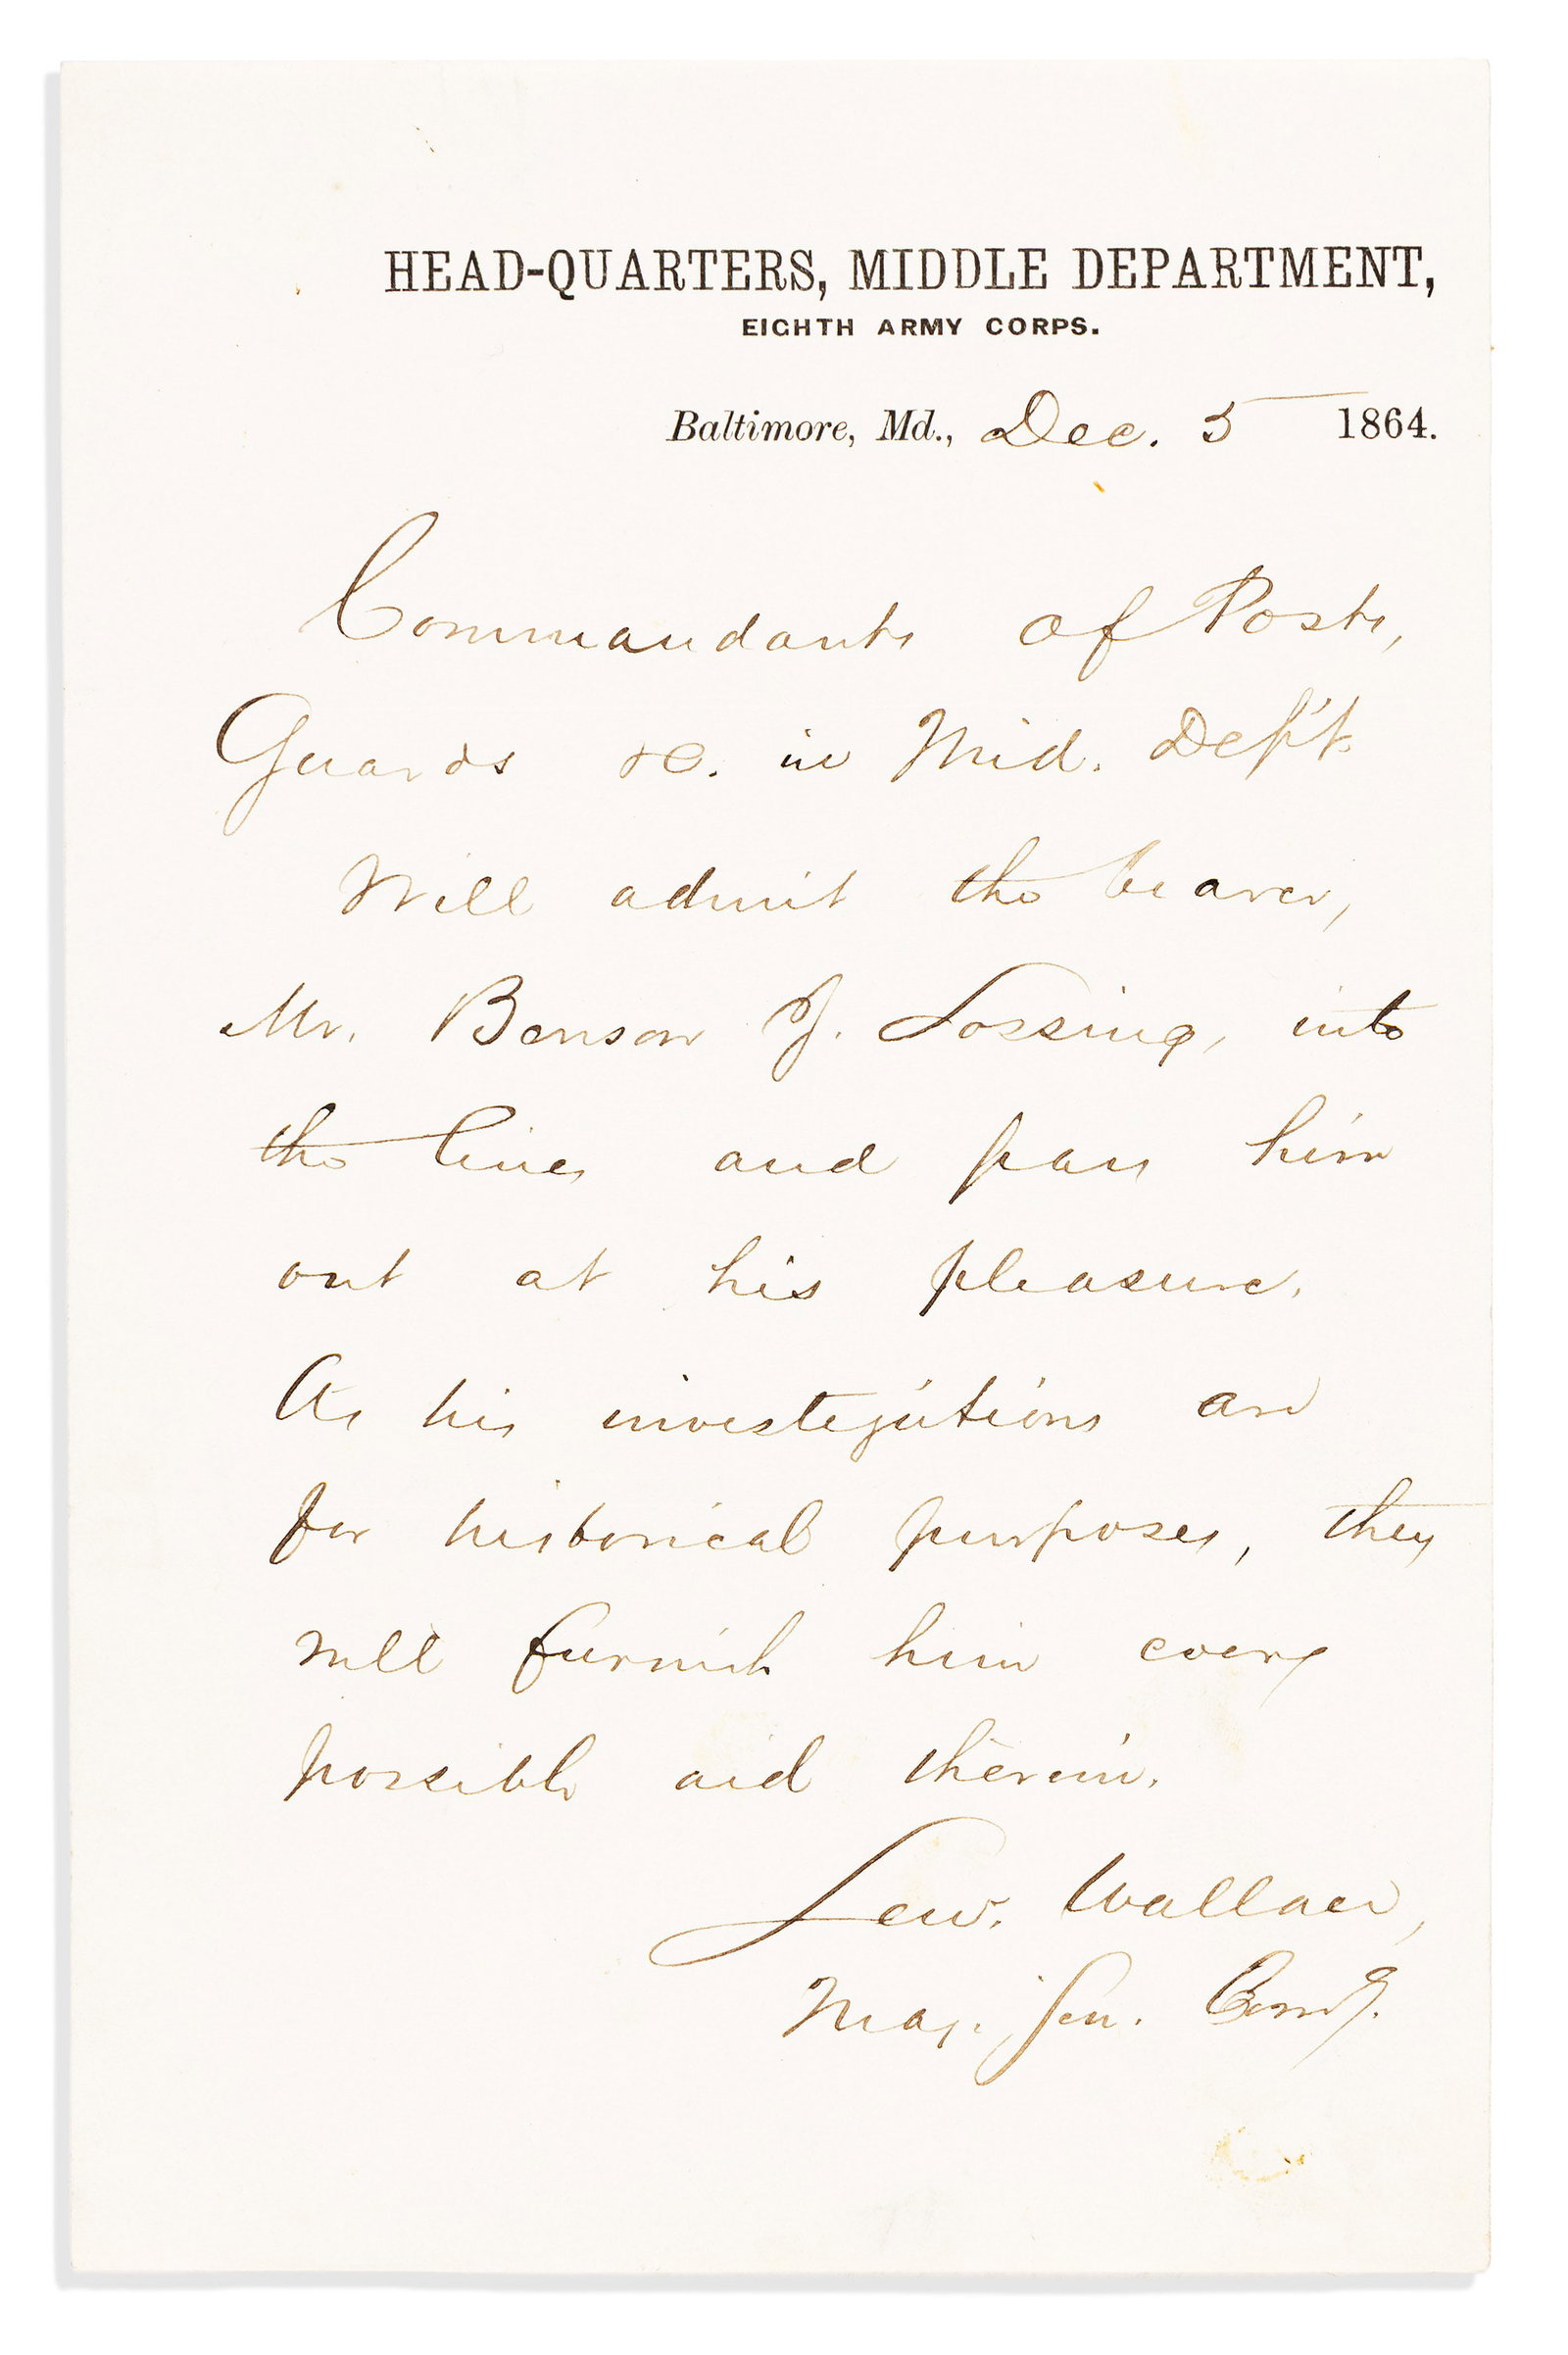 HEAD-QUARTERS, MIDDLE DEPARTMENT,
EIGHTH ARMY CORPS.
Baltimore, Md., Dec. 5 1864.
Commandants of Posts,
Guards &c. in Mid. Dep't.
Will admit the bearer,
Mr. Benson J. Lossing, into
the lines and pass him
out at his pleasure.
As his investigations are
for historical purposes, they
will furnish him every
possible aid therein.
Lew. Wallace,
Maj. Gen. Comd'g.